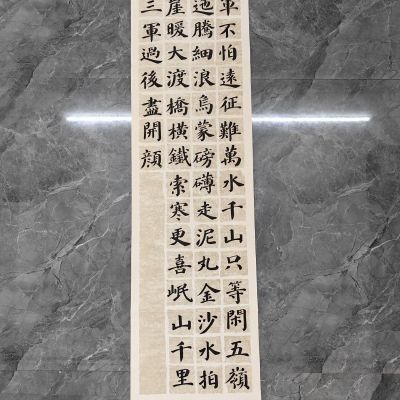 軍不怕遠征難萬水千山只等閑五嶺
迤騰細浪烏蒙磅礴走泥丸金沙水拍
崖暖大渡橋橫鐵索寒更喜岷山千里
三軍過後盡開顔